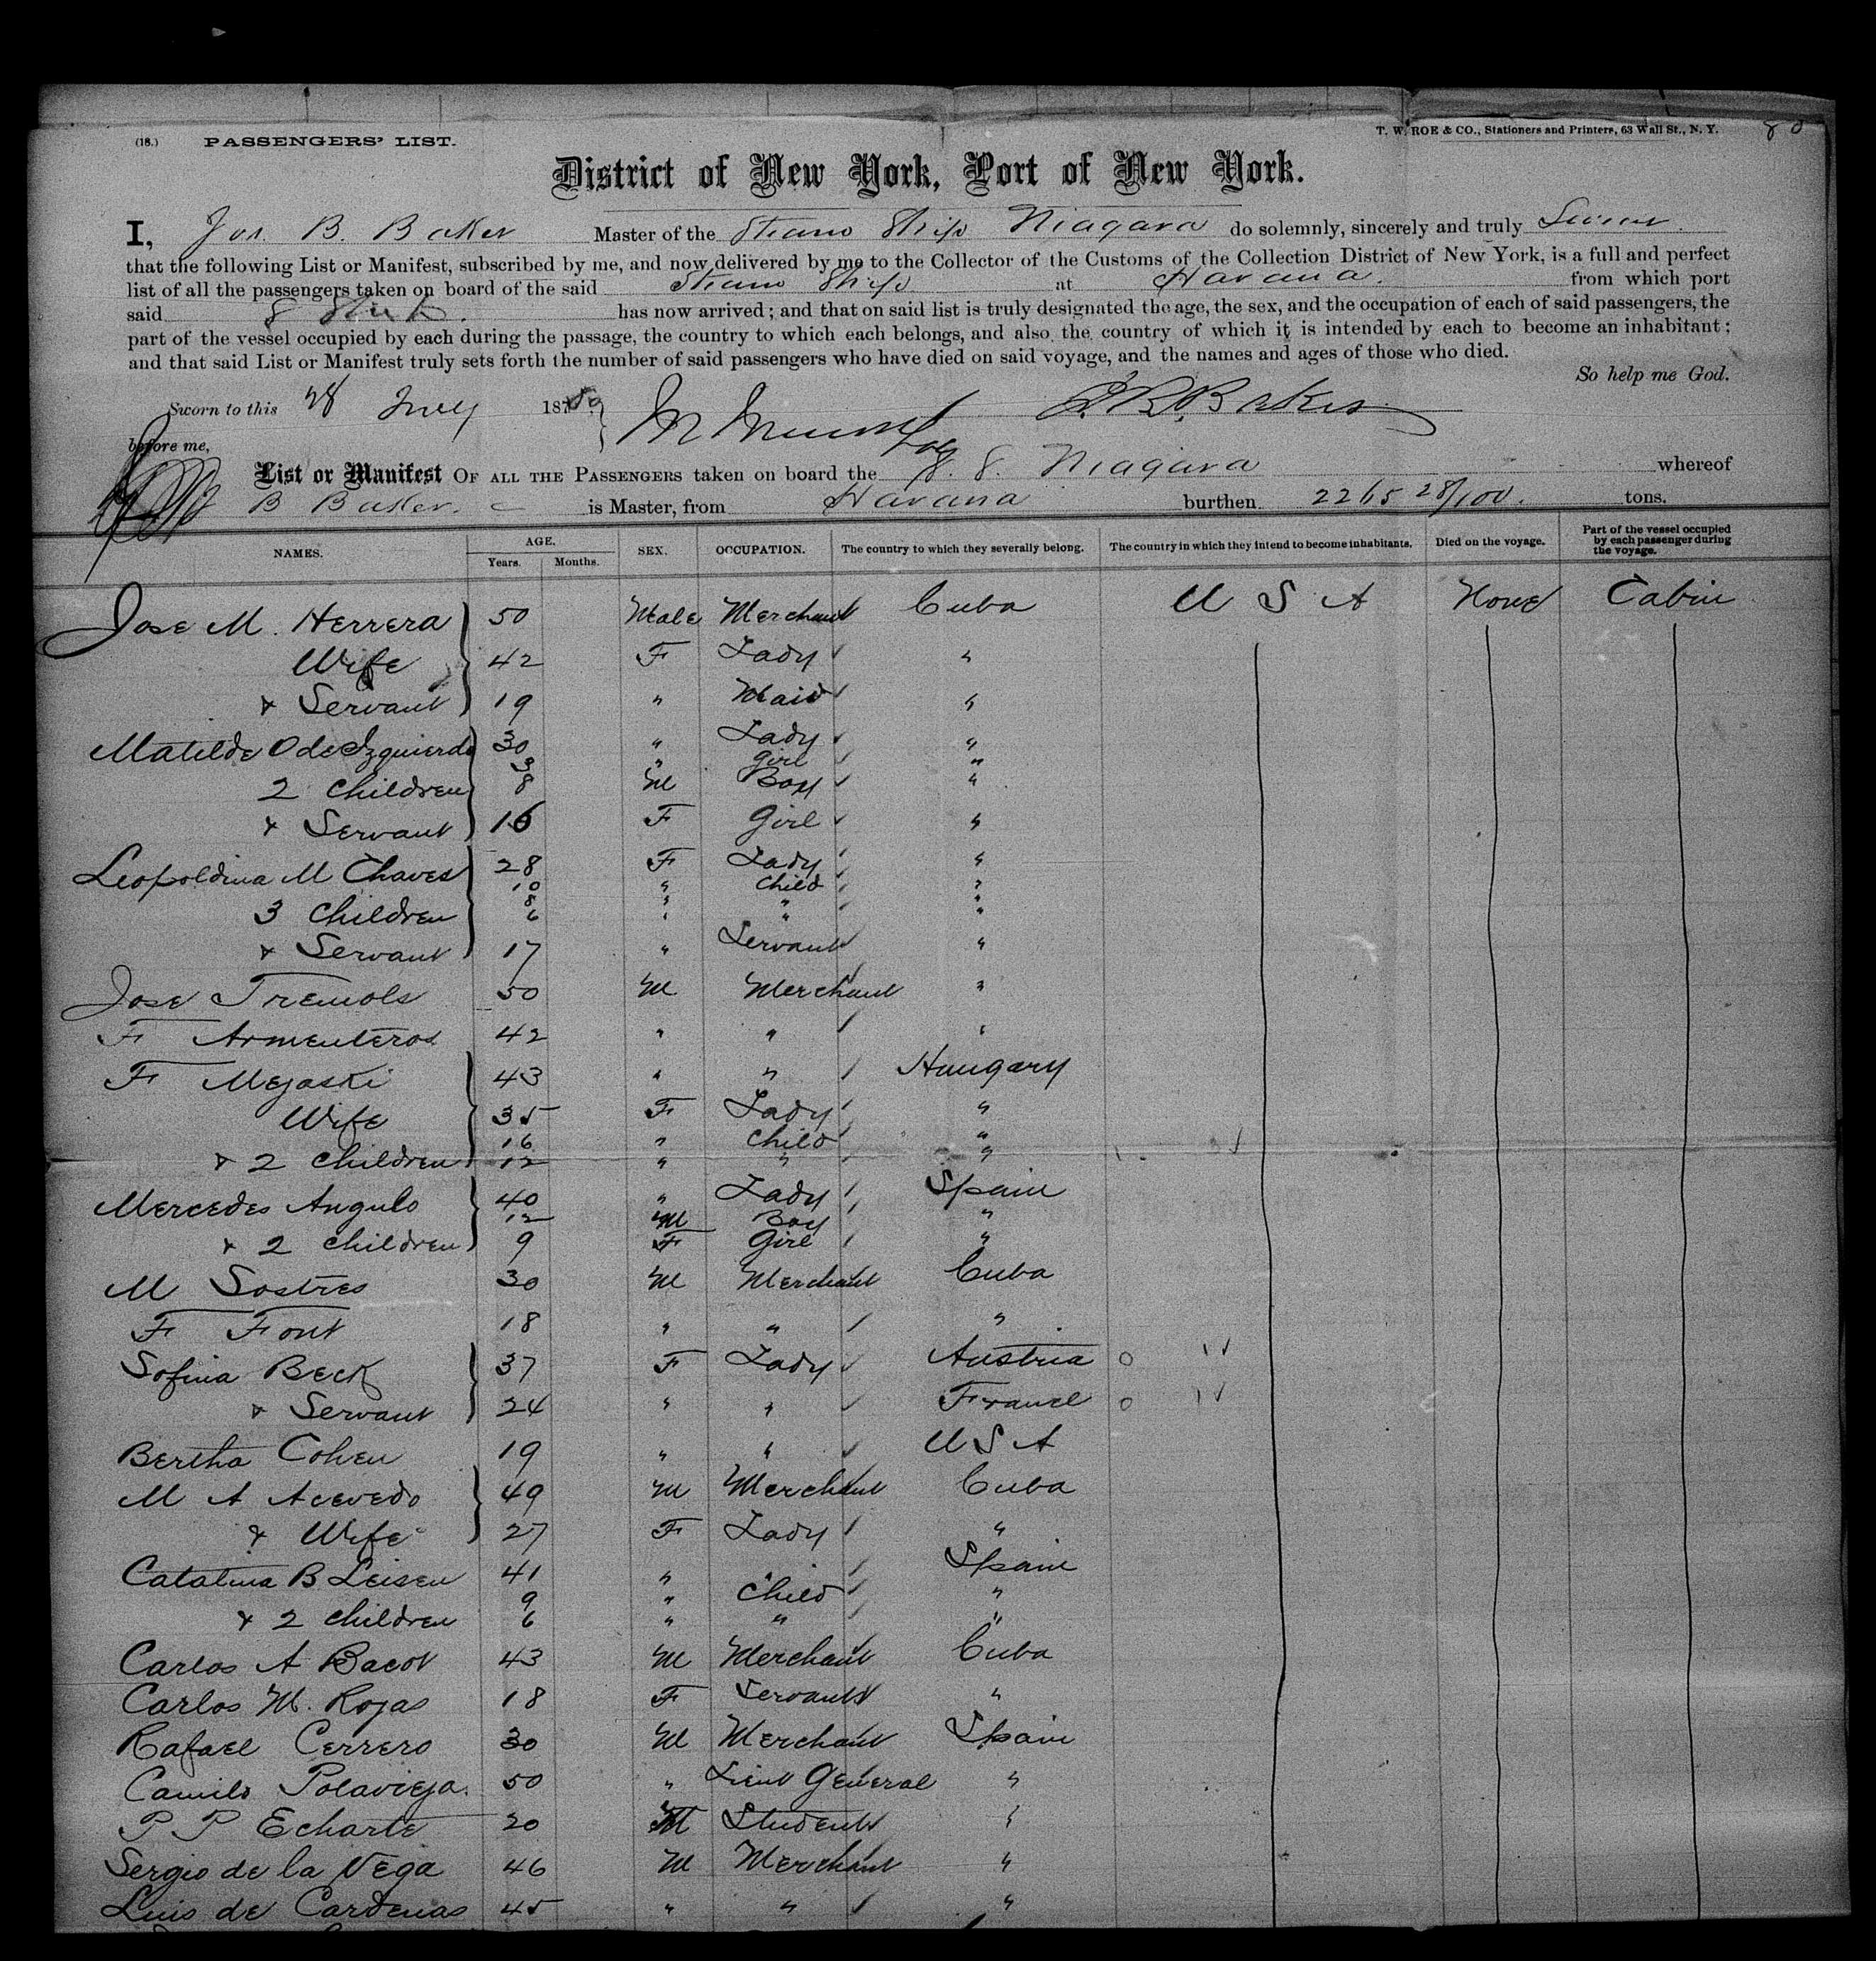 (18.) PASSENGERS' LIST. T. W. ROE & CO., Stationers and Printers, 63 Wall St., N. Y. 80
District of New York, Port of New York.
I, Jos. B. Baker Master of the Steam Ship Niagara do solemnly, sincerely and truly Swear
that the following List or Manifest, subscribed by me, and now delivered by me to the Collector of the Customs of the Collection District of New York, is a full and perfect
list of all the passengers taken on board of the said Steam Ship at Havana. from which port
said has now arrived; and that on said list is truly designated the age, the sex, and the occupation of each of said passengers, the
part of the vessel occupied by each during the passage, the country to which each belongs, and also the country of which it is intended by each to become an inhabitant;
and that said List or Manifest truly sets forth the number of said passengers who have died on said voyage, and the names and ages of those who died.
So help me God.
Sworn to this 28 187 Baker
before me,
List or Manifest OF ALL THE PASSENGERS taken on board the S. S. Niagara whereof
B Baker. is Master, from Havana burthen 2265 28/100. tons.
NAMES. AGE. Years. Months. SEX. OCCUPATION. The country to which they severally belong. The country in which they intend to become inhabitants. Died on the voyage. Part of the vessel occupied by each passenger during the voyage.
Jose M. Herrera 50 Male Merchant Cuba U S A None Cabin
Wife 42 F Lady "
& Servant 19 " Maid "
Matilde O de Izquierdo 30 " Lady "
3 " Girl "
2 Children 8 M Boy "
& Servant 16 F Girl "
Leopoldina M Chaves 28 F Lady "
10 " Child "
8 " " "
3 Children 6 " " "
& Servant 17 " Servant "
Jose Tremols 50 M Merchant "
F Armenteros 42 " " "
F Mejaski 43 " " Hungary
Wife 35 F Lady "
16 " Child "
& 2 Children 12 " " "
Mercedes Angulo 40 " Lady Spain
12 M Boy "
& 2 Children 9 F Girl "
M Sostres 30 M Merchant Cuba
F Font 18 " " "
Sofina Beck 37 F Lady Austria
& Servant 24 " " France
Bertha Cohen 19 " " U S A
M A Acevedo 49 M Merchant Cuba
& Wife 27 F Lady "
Catalina B Leisen 41 " " Spain
9 " Child "
& 2 Children 6 " " "
Carlos A Bacot 43 M Merchant Cuba
Carlos M. Rojas 18 F Servant "
Rafael Cerrero 30 M Merchant Spain
Camilo Polavieja. 50 " Lieut General "
P P Echarte 20 M Student "
Sergio de la Vega 46 M Merchant "
Luis de Cardenas 45 " " "